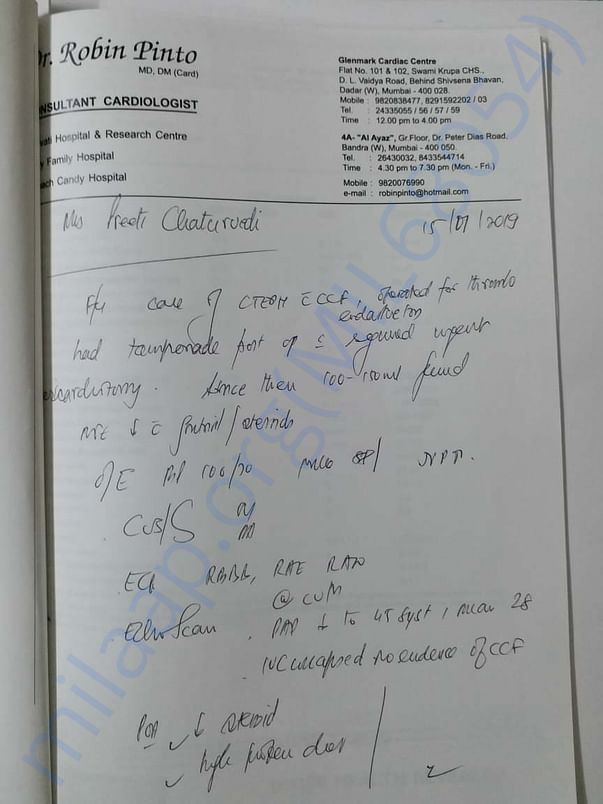 Dr. Robin Pinto
MD, DM (Card)
NSULTANT CARDIOLOGIST
vati Hospital & Research Centre
y Family Hospital
ach Candy Hospital
Glenmark Cardiac Centre
Flat No. 101 & 102, Swami Krupa CHS.,
D. L. Vaidya Road, Behind Shivsena Bhavan,
Dadar (W), Mumbai - 400 028.
Mobile : 9820838477, 8291592202 / 03
Tel. : 24335055 / 56 / 57 / 59
Time : 12.00 pm to 4.00 pm
4A- "Al Ayaz", Gr.Floor, Dr. Peter Dias Road,
Bandra (W), Mumbai - 400 050.
Tel. : 26430032, 8433544714
Time : 4.30 pm to 7.30 pm (Mon. - Fri.)
Mobile : 9820076990
e-mail : robinpinto@hotmail.com
Preeti Chaturvedi
15/07/2019
case of CTEPH CCF, operated for thrombo
had tamponade post op required urgent
Since then 100-150ml fluid
steroids
O/E 100/70
CVS/S
ECG RBBB, RAE RAD
Echo Scan PAP ↓ to 45 syst, mean 28
IVC collapsed no evidence of CCF
↓ steroid
high protein diet
milaap.org(MIL66054)